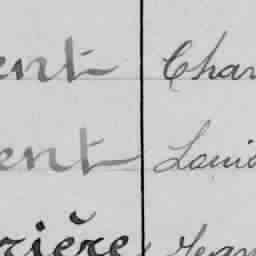 ent Char
ent Loui
rière Jean